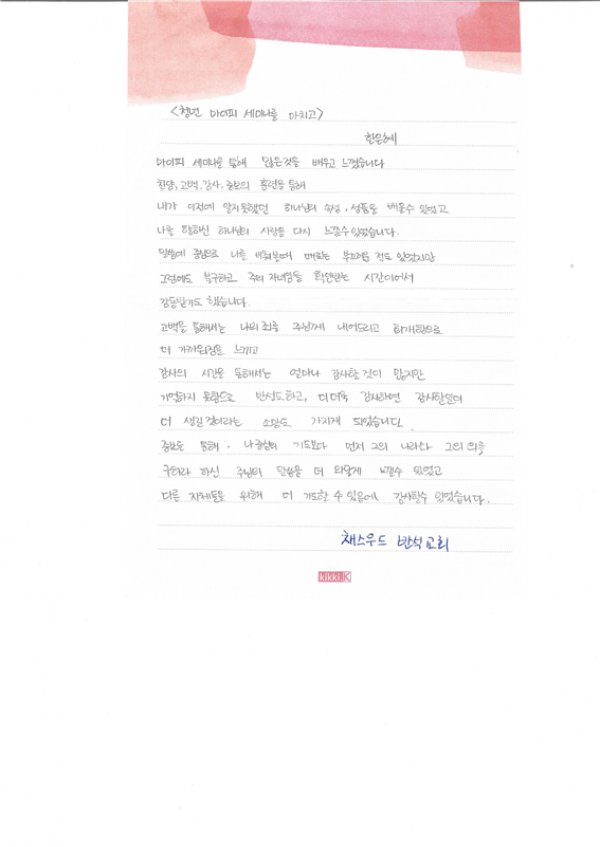 <청년 마이피 세미나를 마치고>
한은혜
마이피 세미나를 통해 많은것을 배우고 느꼈습니다
찬양, 고백, 감사, 중보의 훈련을 통해
내가 이전에 알지못했던 하나님의 속성, 성품을 배울수 있었고
나를 향하신 하나님의 사랑을 다시 느낄수있었습니다.
말씀에 중심으로 나를 비춰보며 때로는 부끄러울 적도 있었지만
그럼에도 불구하고 주의 자녀됨을 확인받는 시간이어서
감동받기도 했습니다.
고백을 통해서는 나의 죄를 주님께 내어드리고 회개함으로
더 가까워짐을 느끼고
감사의 시간을 통해서는 얼마나 감사할 것이 많지만
기억하지 못함으로 반성도하고, 더더욱 감사하면 감사할일이
더 생길것이라는 소망도 가지게 되었습니다.
중보를 통해. 나 중심의 기도보다 먼저 그의 나라와 그의 의를
구하라 하신 주님의 말씀을 더 와닿게 느낄수 있었고
다른 지체들을 위해 더 기도할 수 있음에 감사할수 있었습니다.
채스우드 반석교회
kikki.K